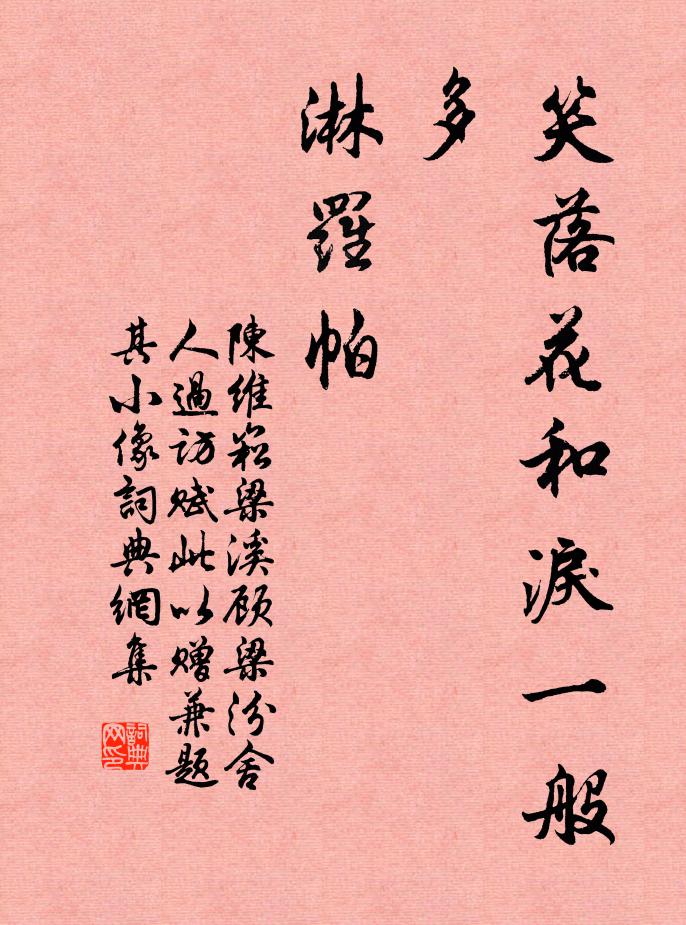 笑落花和淚一般
多
淋羅帕
陳維崧梁溪顧梁汾舍
人過訪賦此以贈兼題
其小像詞典網集
詞典
网印